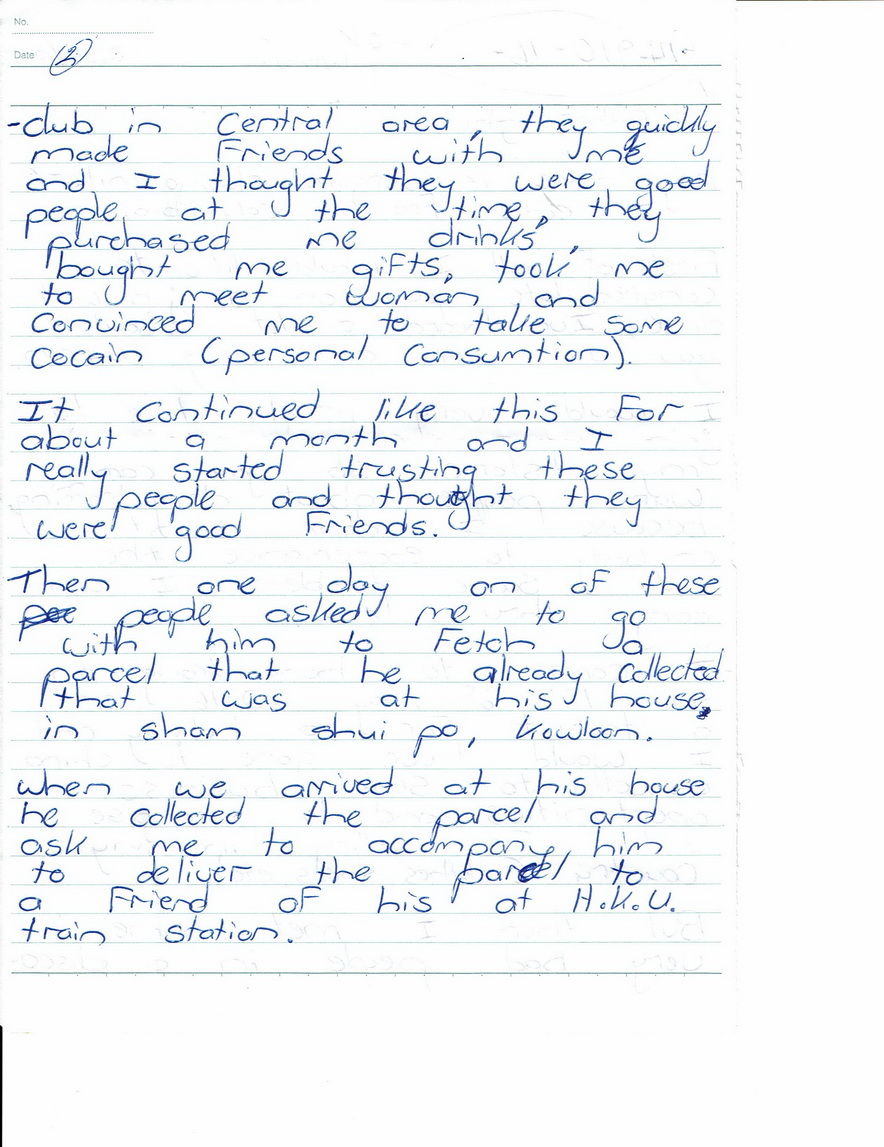 No.
Date (2)
-club in Central area, they quickly
made Friends with me
and I thought they were good
people at the time, they
purchased me drinks,
bought me gifts, took me
to meet woman and
convinced me to take some
cocain (personal consumtion).
It continued like this For
about a month and I
really started trusting these
people and thought they
were good Friends.
Then one day on of these
people asked me to go
with him to Fetch a
parcel that he already collected
that was at his house,
in sham shui po, Kowloon.
when we arrived at his house
he collected the parcel and
ask me to accompany him
to deliver the parcel to
a Friend of his at H.K.U.
train station.